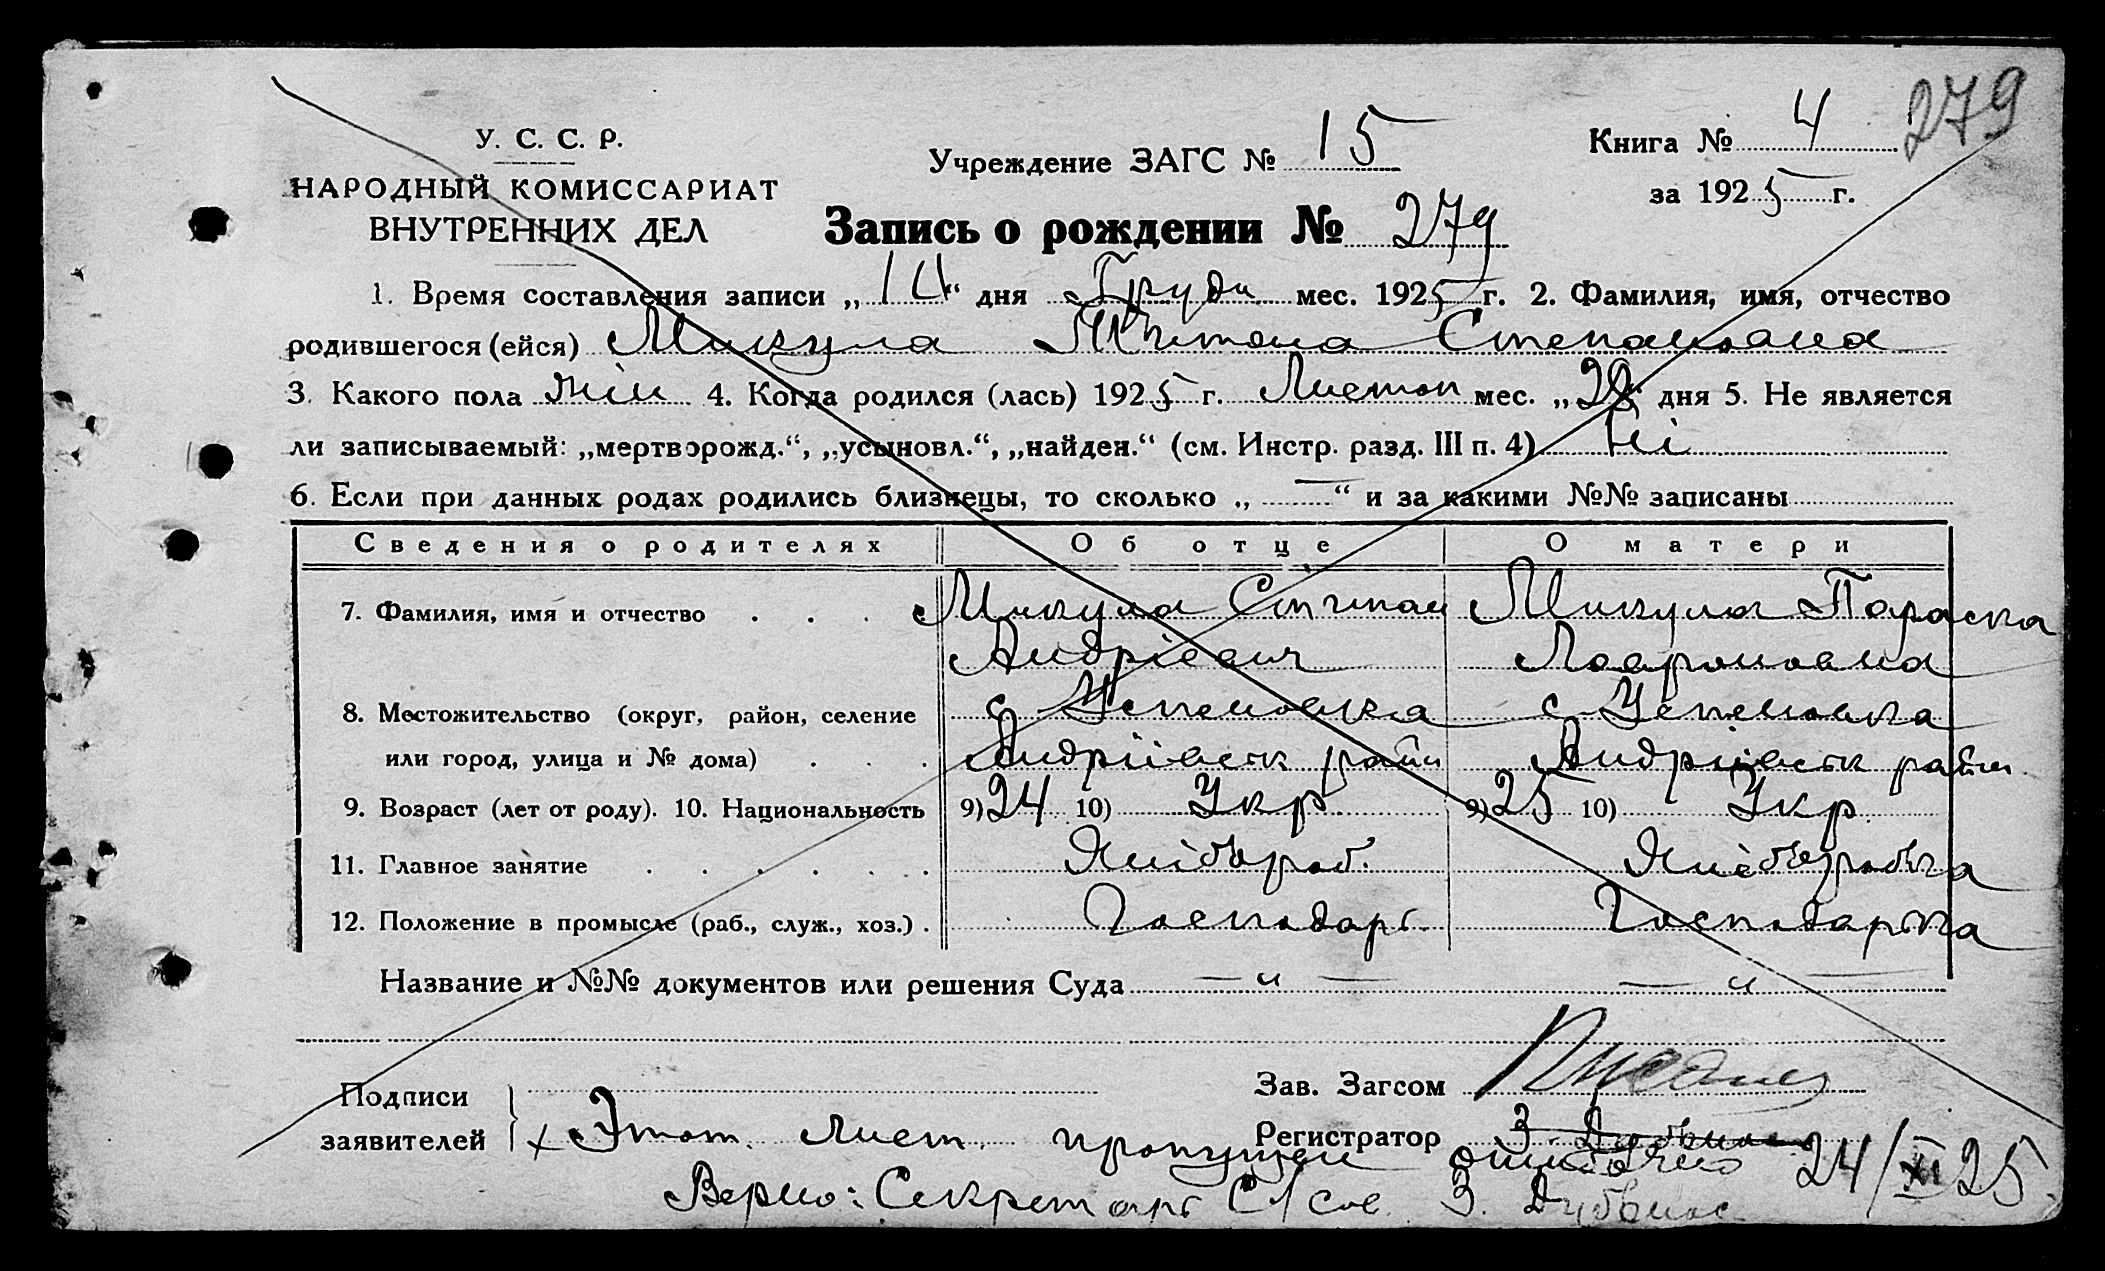 У. С. С. Р.
НАРОДНЫЙ КОМИССАРИАТ
ВНУТРЕННИХ ДЕЛ
Учреждение ЗАГС № 15
Книга № 4
279
за 1925 г.
Запись о рождении № 279
1. Время составления записи „14“ дня Грудн мес. 1925 г. 2. Фамилия, имя, отчество
родившегося (ейся) Микула Степановна
3. Какого пола жін 4. Когда родился (лась) 1925 г. Листоп мес. „28“ дня 5. Не является
ли записываемый: „мертворожд.“, „усыновл.“, „найден.“ (см. Инстр. разд. III п. 4) Ні
6. Если при данных родах родились близнецы, то сколько „ — “ и за какими №№ записаны
Сведения о родителях Об отце О матери
7. Фамилия, имя и отчество . . . Микула Степан Микула Параска
Андрієвич Лавроновна
8. Местожительство (округ, район, селение с Успеновка с Успеновка
или город, улица и № дома) . . . Андріівськ район Андріівськ район
9. Возраст (лет от роду). 10. Национальность 9) 24 10) Укр. 9) 25 10) Укр.
11. Главное занятие . . . . . . Хлібороб. Хліборобка
12. Положение в промысле (раб., служ., хоз.) . Господарь Господарька
Название и №№ документов или решения Суда — „ — — „ —
Подписи
заявителей
Зав. Загсом
Регистратор З.
+ Этот лист пропущен ошибочно 24/XII 25.
Верно: Секретарь С/сов. З.